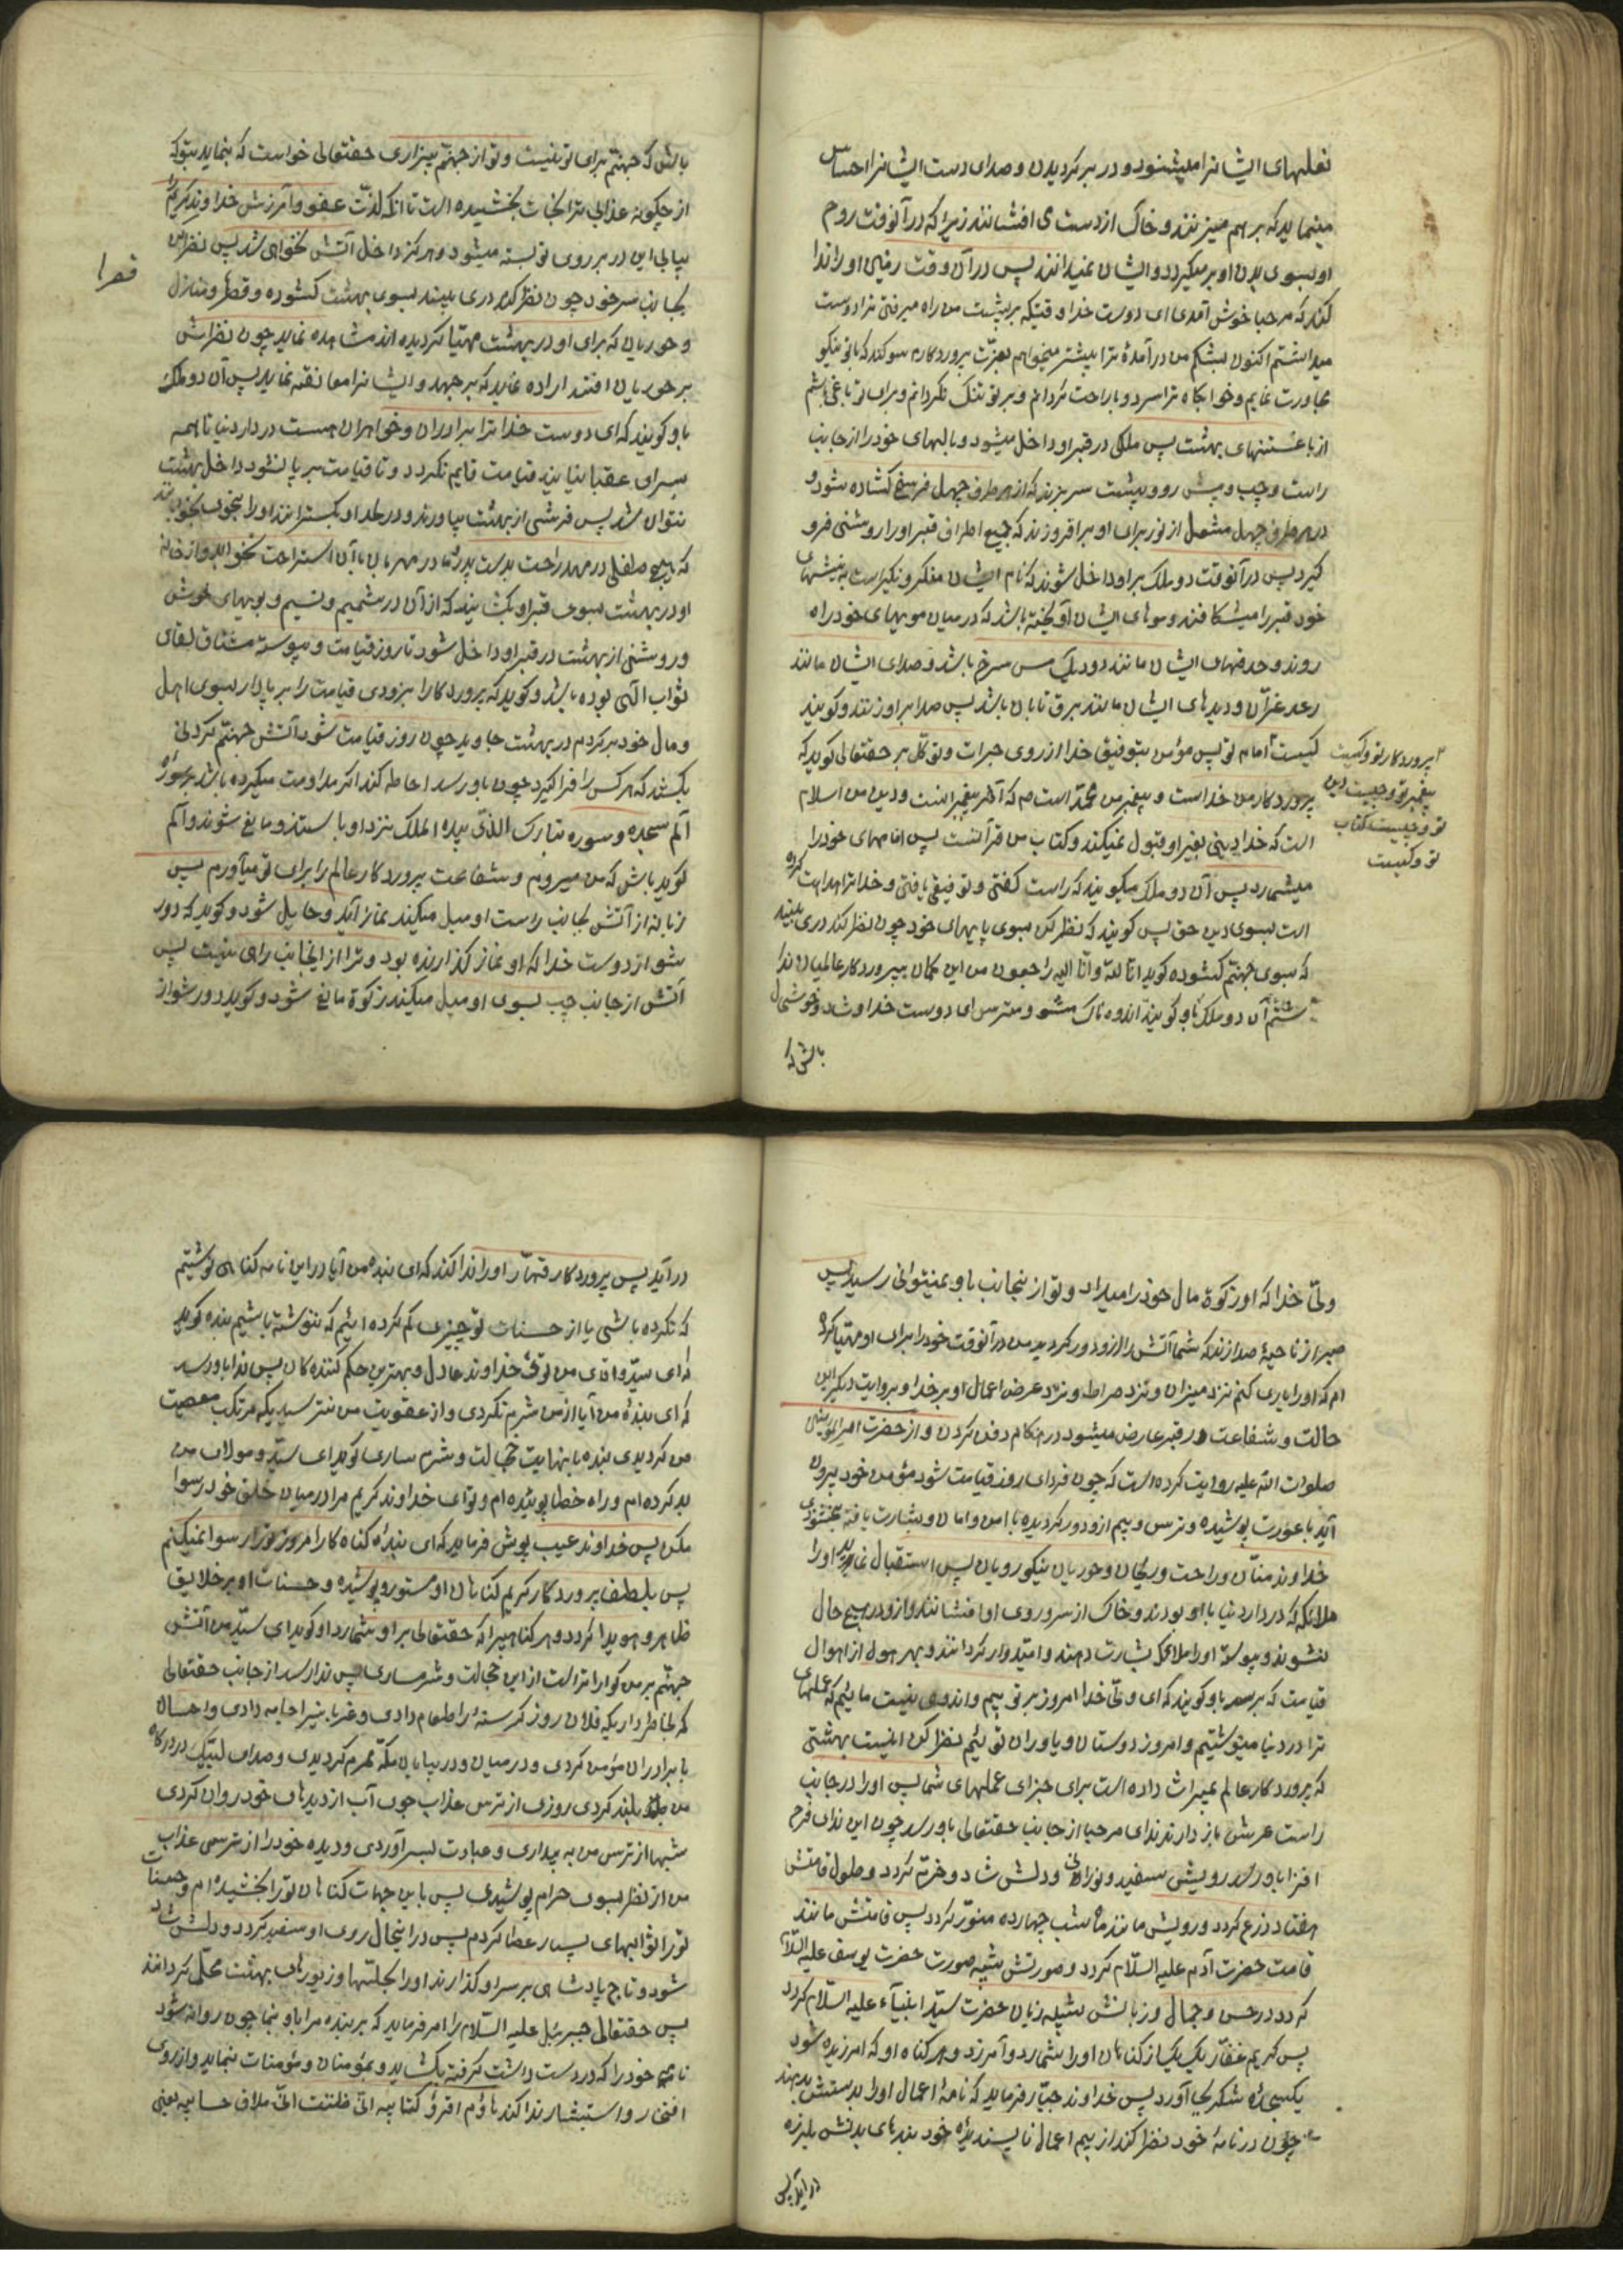 نعلهای ایشانرا میشنود و در برگردیدن و صدای دست ایشانرا احساس
مینماید که بر هم میزنند و خاک از دست می افشانند زیرا که در آنوقت روح
او بسوی بدن او بر میگردد و ایشان نمیدانند پس در آن وقت زمین او را ندا
کند که مرحبا خوش آمدی ای دوست خدا وقتیکه بر پشت من راه میرفتی ترا دوست
میداشتم اکنون بشکم من درآمدهٔ ترا بیشتر میخواهم بعزّت پروردگارم سوکند که با تو نیکو
مجاورت نمایم و خوابگاه ترا سرد و با راحت گردانم و بر تو تنگ نگردانم و برای تو باغی باشم
از باغستنهای بهشت پس ملکی در قبر او داخل میشود و بالهای خود را از جانب
راست و چپ و پیش رو و پشت سر بزند که از هر طرف چهل فرسخ کشاده شود و
در هر طرف چهل مشعل از نور برای او برافروزند که جمیع اطراف قبر او را روشنی فرو
گیرد پس در آنوقت دو ملک بر او داخل شوند که نام ایشان منکر و نکیر است به نیشهای
خود قبر را میشکافند و موهای ایشان آویخته باشد که در میان مویهای خود راه
روند و حدقهای ایشان مانند دو دیک مس سرخ باشد و صدای ایشان مانند
رعد غرّان و دیدهای ایشان مانند برق تابان باشد پس صدا بر او زنند و گویند
کیست امام تو پس مؤمن بتوفیق خدا از روی جرات و توکّل بر حقتعالی گوید که
پروردگار من خداست و پیغمبر من محمّد است ص که آخر پیغمبرانست و دین من اسلام
است که خدا دینی بغیر او قبول نمیکند و کتاب من قرآنست پس امامهای خود را
میشمارد پس آن دو ملک میگویند که راست گفتی و توفیق یافتی و خدا ترا هدایت کرده
است بسوی دین حق پس گویند که نظر کن بسوی پایهای خود چون نظر کند دری بیند
که بسوی جهنّم گشوده گوید انّا لله و انّا الیه راجعون من این گمان بپروردگار عالمیان ندا
شتم آن دو ملک باو گویند اندوه ناک مشو و مترس ای دوست خدا و شاد و خوشحال
باش که
پروردگار تو و کیست
پیغمبر تو و چیست دین
تو و چیست کتاب
تو و کیست
باش که جهنّم برای تو نیست و تو از جهنّم بیزاری حقتعالی خواست که بنماید بتو که
از چگونه عذابی ترا نجات بخشیده است تا آنکه لذّت عفو و آمرزش خداوند کریم را
بیابی این در بر روی تو بسته میشود و هرگز داخل آتش نخواهی شد پس نظر کن
بجانب سر خود چون نظر کند دری بیند بسوی بهشت گشوده و قصرها و منازل
قصرا
و حوریان که برای او در بهشت مهیّا گردیده اند مشاهده نماید چون نظرش
بر حوریان افتد اراده نماید که برجهد و ایشانرا معانقه نماید پس آن دو ملک
باو گویند که ای دوست خدا ترا برادران و خواهران هست در دار دنیا تا همه
بسرای عقبا نیایند قیامت قایم نگردد و تا قیامت برپا نشود داخل بهشت
نتوان شد پس فرشی از بهشت بیاورند و در لحد او بگسترانند او را بخوابانند
که هیچ طفلی در مهد راحت بدست پدر و مادر مهربان بآن استراحت نخوابد و از خانه
او در بهشت بسوی قبر او بگشایند که از آن در شمیم و نسیم و بویهای خوش
و روشنی از بهشت در قبر او داخل شود تا روز قیامت و پیوسته مشتاق لقای
ثواب الهی بوده باشد و گوید که پروردگارا بزودی قیامت را برپا دار بسوی اهل
و مال خود برگردم در بهشت جاوید چون روز قیامت شود آتش جهنّم گردنی
بکشد که هر کس را فرا گیرد چون باو رسد احاطه کند اگر مداومت میکرده باشد بر سورهٔ
الم سجده و سوره تبارک الذی بیده الملک نزد او بایستند و مانع شوند و الم
گوید باش که من میروم و شفاعت پروردگار عالم را برای تو میآورم پس
زبانه از آتش بجانب راست او میل میکند نماز آید و حایل شود و گوید که دور
شو از دوست خدا که او نماز گذارنده بود و ترا از اینجانب راهی نیست پس
آتش از جانب چپ بسوی او میل میکند زکوة مانع شود و گوید دور شو از
ولیّ خدا که او زکوة مال خود را میداد و تو از ینجانب باو نمیتوانی رسید پس
صبر از ناحیهٔ صدا زند که شما آتش را از او دور کردید من در آنوقت خود را برای او مهیّا کرده
ام که او را یاری کنم نزد میزان و نزد صراط و نزد عرض اعمال او بر خدا و بروایت دیگر این
حالت و شفاعت در قبر عارض میشود در هنگام دفن کردن و از حضرت امیرالمؤمنین
صلوات الله علیه روایت کرده است که چون فردای روز قیامت شود مؤمن خود بیرون
آید با عورت پوشیده و ترس و بیم از و دور گردیده با امن و امان و بشارت یافته بخشنودی
خداوند منّان و راحت و ریحان و حوریان نیکو رویان پس استقبال نمایند او را
ملائکه که در دار دنیا با او بودند و خاک از سر و روی او افشانند و از و در هیچ حال
نشوند و پیوسته او را ملائک بشارت دهند و امیّدوار گردانند و بهر هول از اهوال
قیامت که برسد باو گویند که ای ولیّ خدا امروز بر تو بیم و اندوهی نیست مائیم که عملهای
ترا در دنیا مینوشتیم و امروز دوستان و یاوران توئیم نظر کن اینست بهشتی
که پروردگار عالم بمیراث داده است برای جزای عملهای شما پس او را در جانب
راست عرش باز دارند ندای مرحبا از جانب حقتعالی باو رسد چون این ندای فرح
افزا باو رسد رویش سفید و نورانی و دلش شاد و خرّم گردد و طول قامتش
هفتاد ذرع گردد و رویش مانند ماه شب چهارده منوّر گردد پس قامتش مانند
قامت حضرت آدم علیه السّلام گردد و صورتش شبیه صورت حضرت یوسف علیه السّلام
گردد در حسن و جمال و زبانش شبیه زبان حضرت سیّد انبیآء علیه السّلام گردد
پس کریم غفّار یک یک از گناهان او را شمارد و آمرزد و هر گناه او که آمرزیده شود
یکسجدهٔ شکر بجا آورد پس خداوند جبّار فرماید که نامهٔ اعمال او را بدستش بدهند
چون در نامهٔ خود نظر کند از بیم اعمال ناپسندیدهٔ خود بندهای بدنش بلرزه
در آید پس
درآید پس پروردگار قهّار او را ندا کند که ای بندهٔ من آیا در این نامه گناهی نوشتیم
که نکرده باشی یا از حسنات تو چیزی کم کرده ایم که ننوشته باشیم بنده گوید
که ای سیّد و آقای من توئی خداوند عادل و بهترین حکم کننده گان پس ندا باو رسد
که ای بندهٔ من آیا از من شرم نکردی و از عقوبت من نترسیدی که مرتکب معصیت
من گردیدی بنده با نهایت خجالت و شرمساری گوید ای سیّد و مولای من
بد کرده ام و راه خطا پوئیده ام و توئی خداوند کریم مرا در میان خلق خود رسوا
مکن پس خداوند عیب پوش فرماید که ای بندهٔ گناه کار امروز تو را رسوا نمیکنم
پس بلطف پروردگار کریم گناهان او مستور و پوشیده و حسنات او بر خلایق
ظاهر و هویدا گردد و هر گناهیرا که حقتعالی بر او شمارد او گوید ای سیّد من آتش
جهنّم بر من گواراتر است از این خجالت و شرمساری پس ندا رسد از جانب حقتعالی
که بخاطر داری که فلان روز گرسنهٔ را طعام دادی و غریبان را جامه دادی و احسان
با برادران مؤمن کردی و در میان و در بیابان مکّه محرم گردیدی و صدای لبّیک در درگاه
من بلند کردی روزی از ترس عذاب چون آب از دیدهای خود روان کردی
شبها از ترس من به بیداری و عبادت بسر آوردی و دیده خود را از ترسی عذاب
من از نظر بسوی حرام پوشیدی پس باین جهات گناهان تو را بخشیده ام و حسنات
تو را ثوابهای بسیار عطا کردم پس در اینحال روی او سفید گردد و دلش شاد
شود و تاج پادشاهی بر سر او گذارند او را بحلّتها و زیورهای بهشت محلّی گردانند
پس حقتعالی جبرئیل علیه السّلام را امر فرماید که بر بنده مرا باو بنما چون روانه شود
نامه خود را که در دست داشت گرفته بگشاید و بمؤمنان و مؤمنات بنماید و از روی
افتخار و استبشار ندا کند هاؤم اقرؤ کتابیه انّی ظننت انّی ملاق حسابیه یعنی